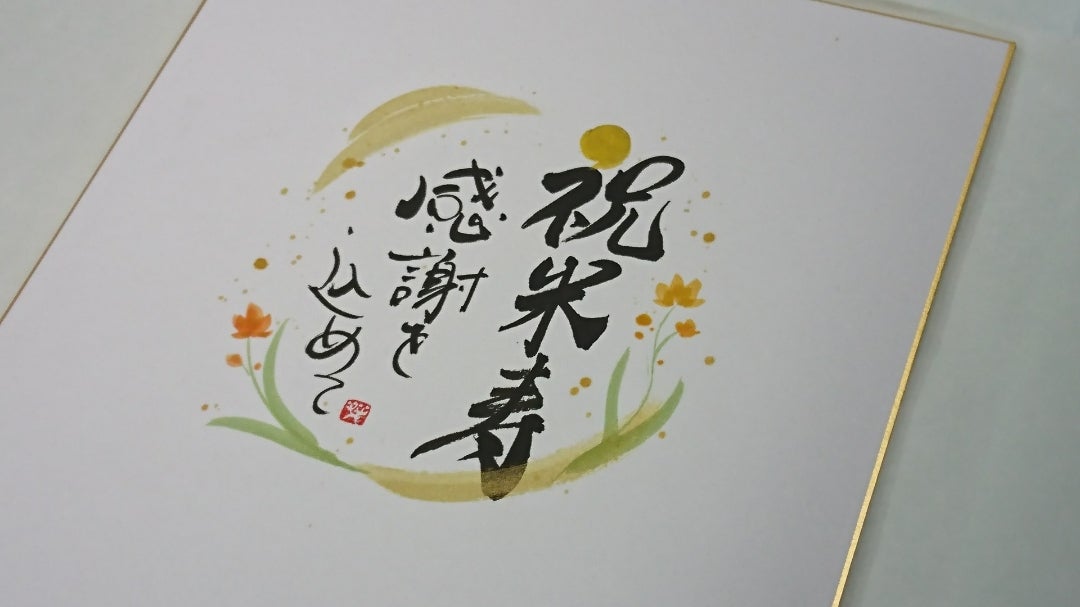 祝米寿
感謝を
込めて